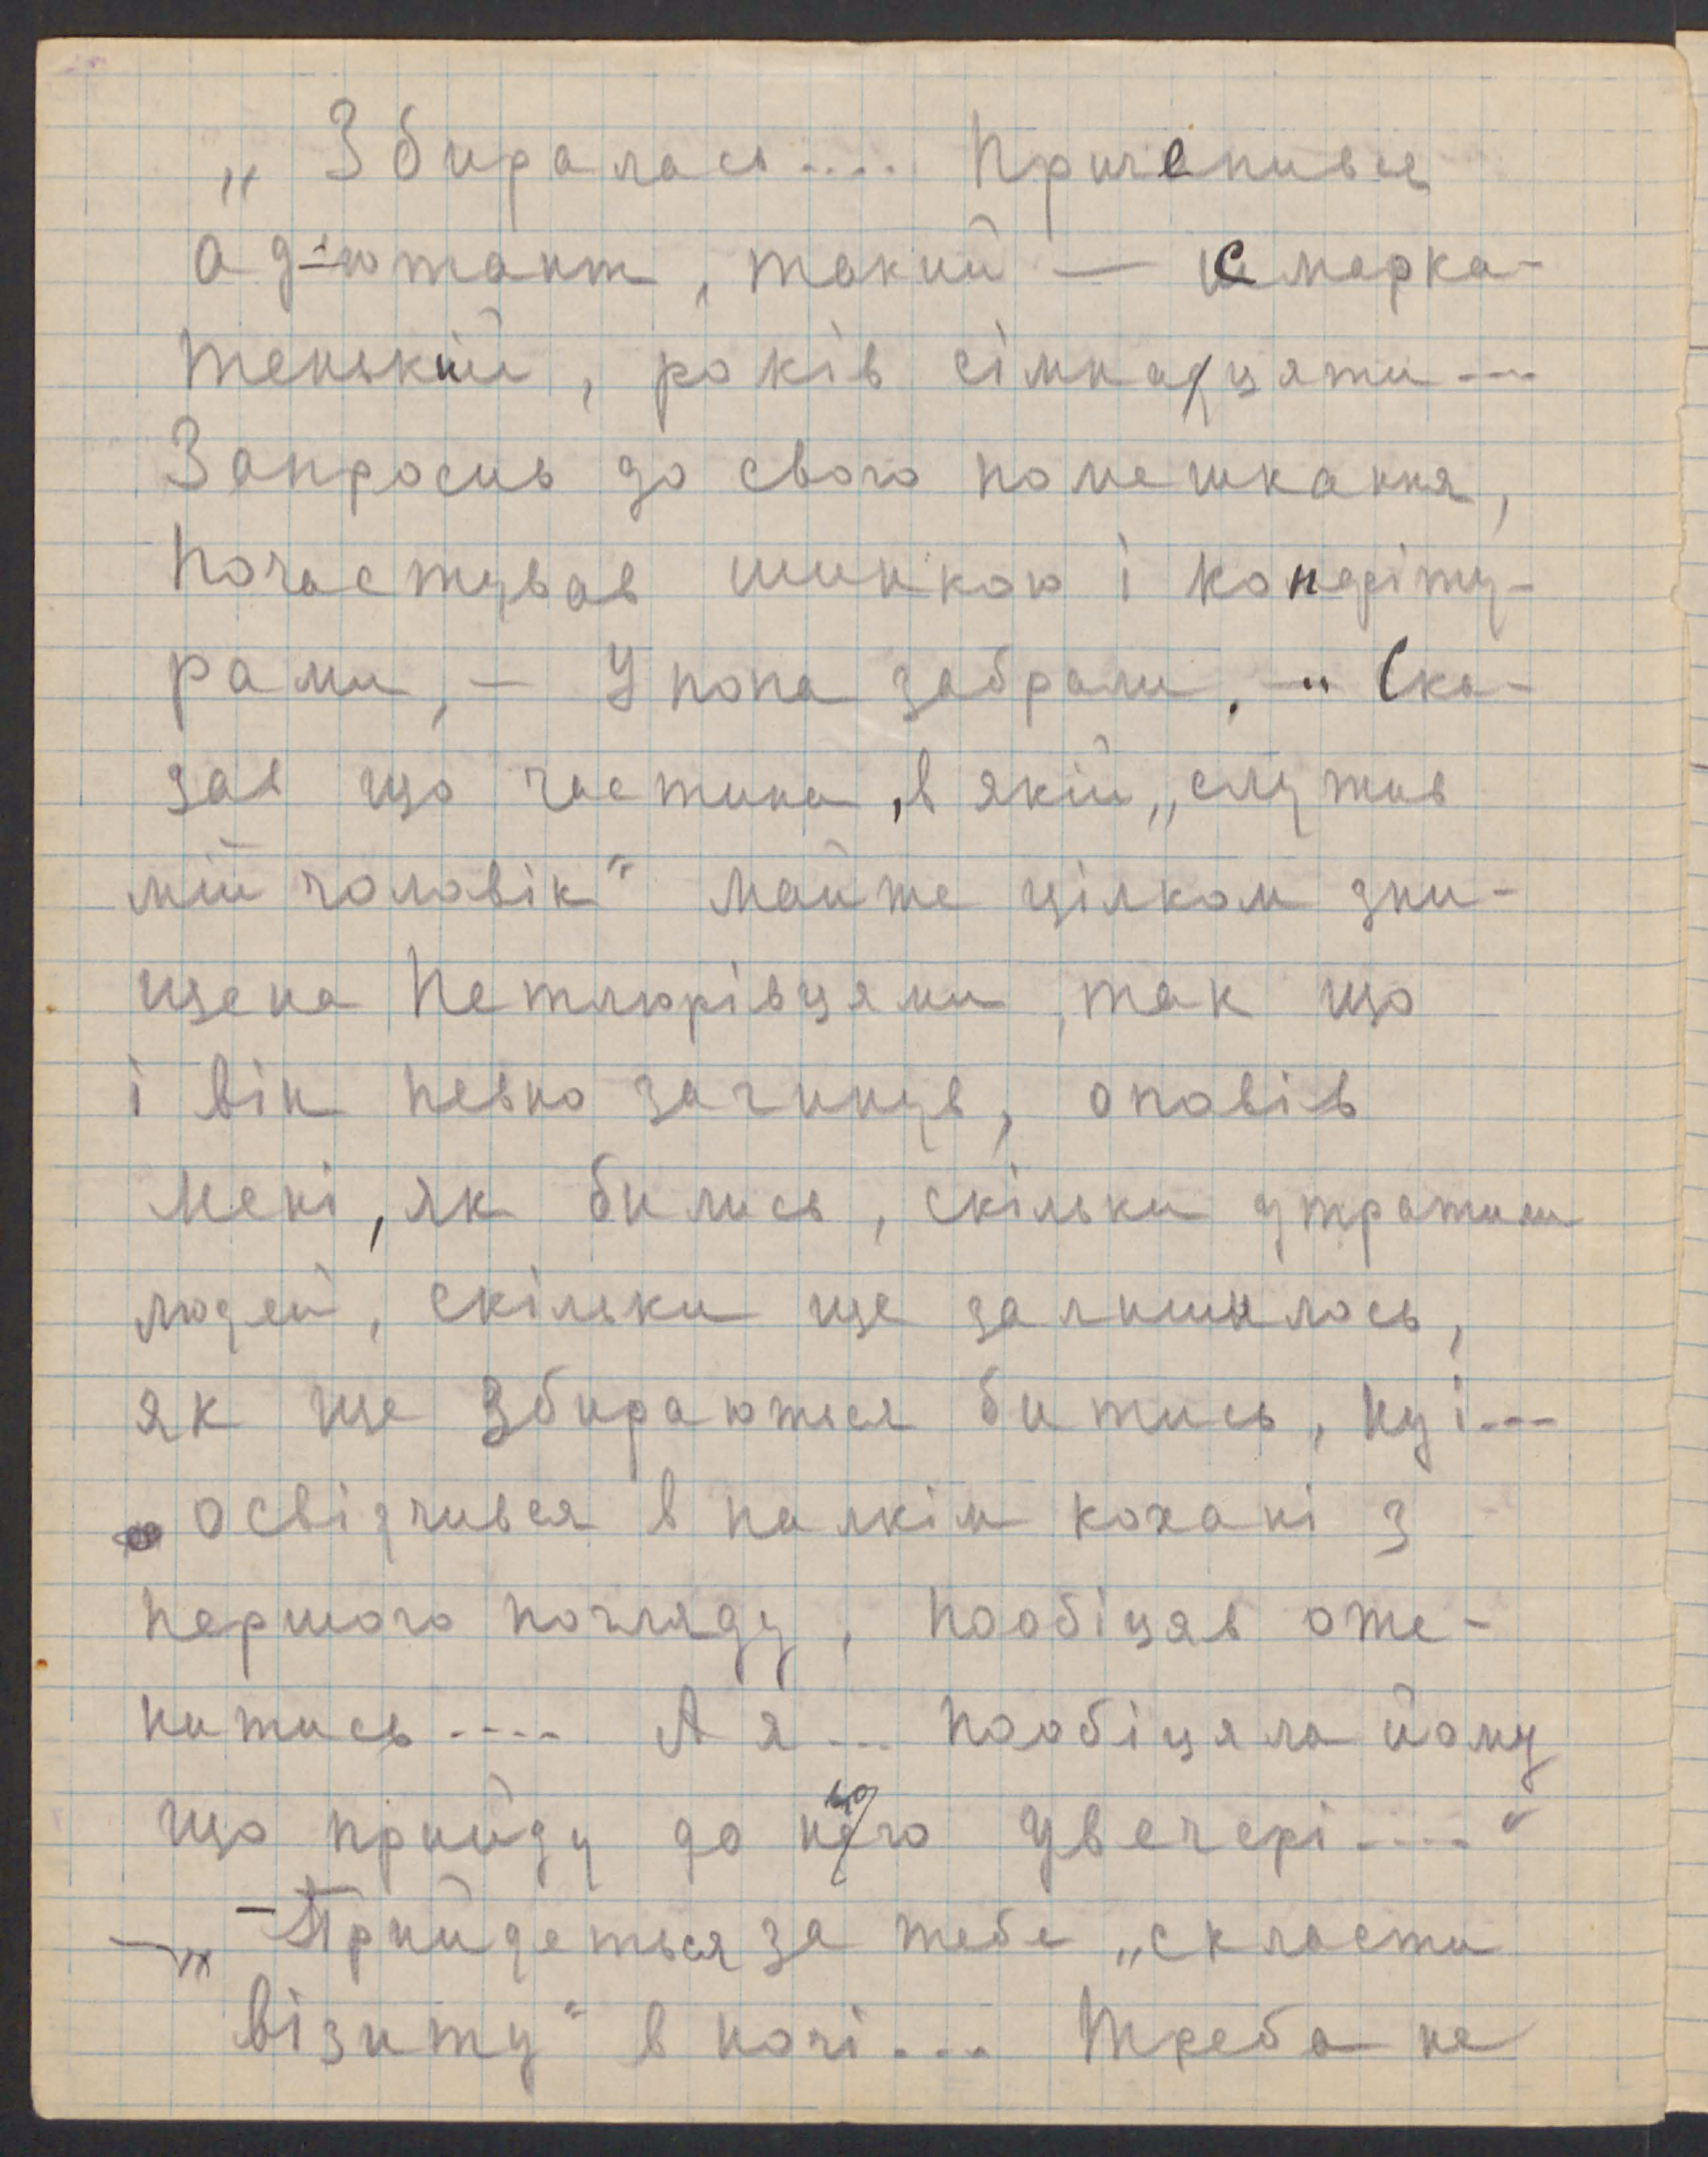 „Збиралась.... Причепився
ад-ютант, такий — смарка-
тенький, років сімнадцяти...
Запросив до свого помешкання,
почастував шинкою і конфіту-
рами, — У попа забрали. —" Ска-
зав що частина, в якій „служив
мій чоловік" майже цілком зни-
щена Петлюрівцями, так що
і він певно загинув, оповів
мені, як бились, скільки утратили
людей, скільки ще залишилось,
як ще збираються битись, ну і...
освідчився в палкім кохані з
першого погляду, пообіцяв оже-
нитись.... А я... пообіцяла йому
що прийду до нього увечері...."
— Прийдеться за тебе „скласти
візиту" в ночі... Треба не